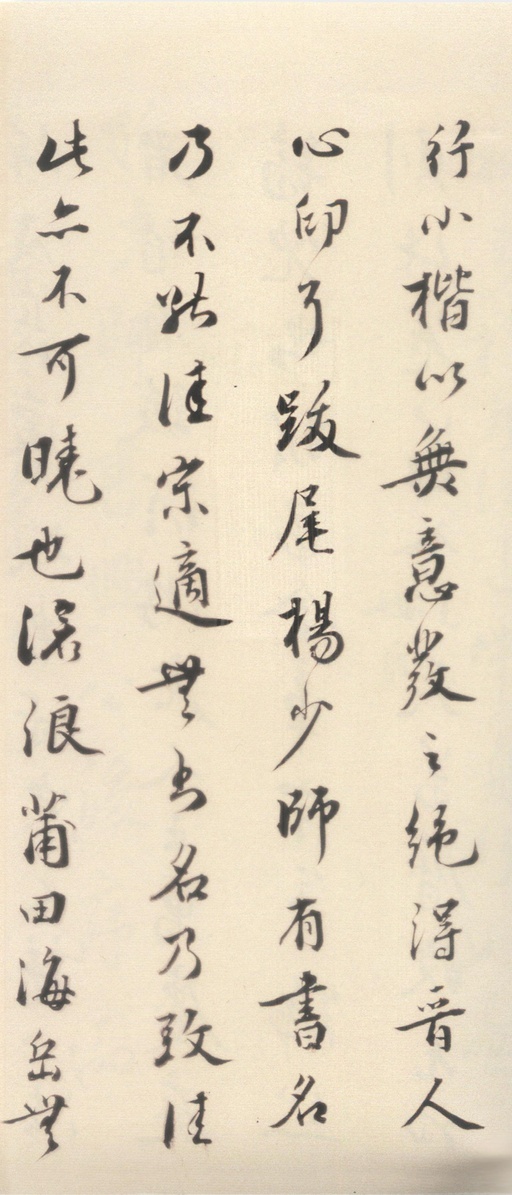 行小楷以無意發之絕得晉人
心印了跋尾楊少師有書名
乃不能佳宗適無書名乃致佳
此亦不可曉也滄浪莆田海岳無